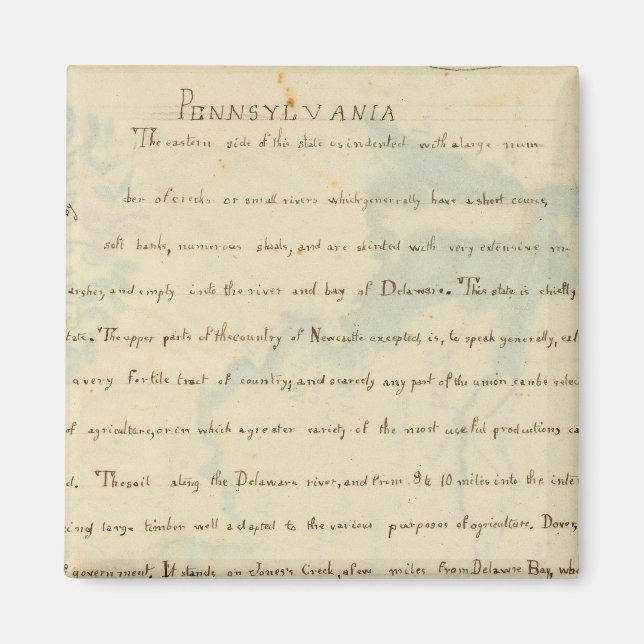 PENNSYLVANIA
The eastern side of this state is indented with a large num-
ber of creeks or small rivers which generrally have a short course,
soft banks, numerous shoals, and are skirted with very extensive m
arshes, and empty into the river and bay of Delaware. This state is chiefly
tate. The upper parts of thscountry of Newcastle excepted, is, to speak generally, ext
a very fortile tract of country; and scarcely any part of the union can be selec
of agriculture, or in which a greater variety of the most useful productions ca
d. The soil along the Delaware river, and from 8 to 10 miles into the inter
cing large timber well adapted to the various purposes of agriculture. Dover,
government. It stands on Jones's Creek, a few miles from Delawre Bay, whe